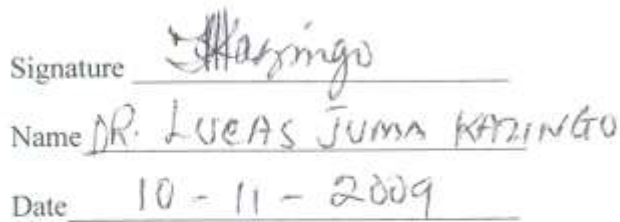 Signature
Name DR. LUCAS JUMA KAZINGO
Date 10 - 11 - 2009